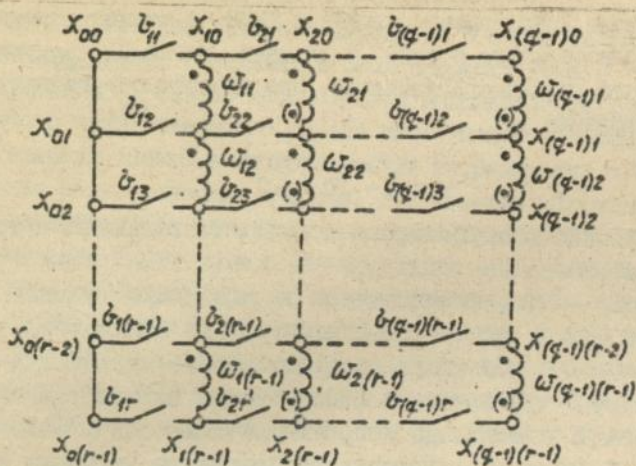 x00 в11 x10 в21 x20 в(q-1)1 x(q-1)0
ω11 ω21 ω(q-1)1
x01 в12 в22 в(q-1)2 x(q-1)1
ω12 ω22 ω(q-1)2
x02 в13 в23 в(q-1)3 x(q-1)2
x0(r-2) в1(r-1) в2(r-1) в(q-1)(r-1) x(q-1)(r-2)
ω1(r-1) ω2(r-1) ω(q-1)(r-1)
в1r в2r в(q-1)r
x0(r-1) x1(r-1) x2(r-1) x(q-1)(r-1)